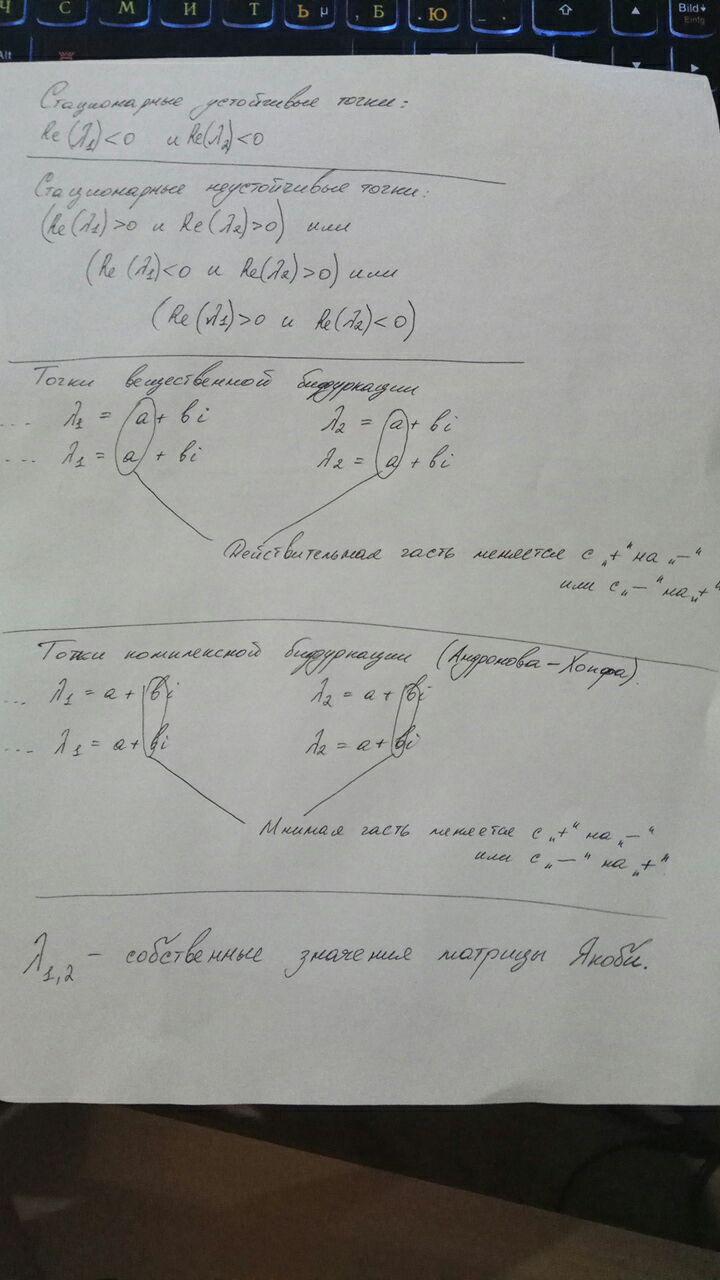 Ч С М И Т Ь µ , Б . Ю - , Bild↓
Einfg
Alt
Стационарные устойчивые точки:
Re(λ1)<0 и Re(λ2)<0
Стационарные неустойчивые точки:
(Re(λ1)>0 и Re(λ2)>0) или
(Re(λ1)<0 и Re(λ2)>0) или
(Re(λ1)>0 и Re(λ2)<0)
Точки вещественной бифуркации
... λ1 = a + вi λ2 = a + вi
... λ1 = a + вi λ2 = a + вi
Действительная часть меняется с „+“ на „—“
или с „—“ на „+“
Точки комплексной бифуркации (Андронова-Хопфа).
... λ1 = a + вi λ2 = a + вi
... λ1 = a + вi λ2 = a + вi
Мнимая часть меняется с „+“ на „—“
или с „—“ на „+“.
λ1,2 – собственные значения матрицы Якоби.